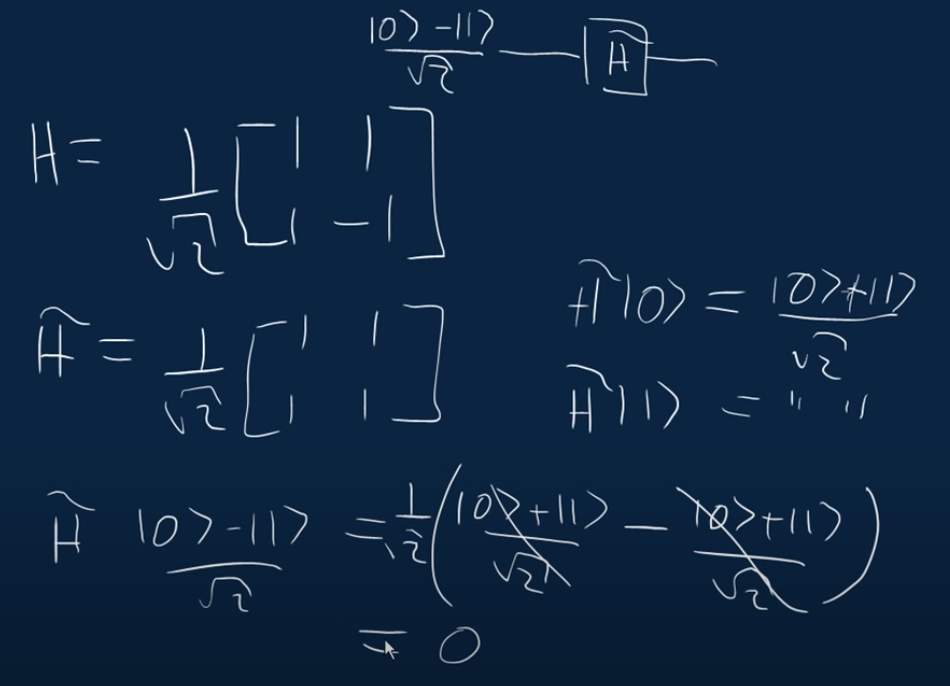 |0⟩-|1⟩/√2 — [H̃] —
H = 1/√2 [1 1; 1 -1]
H̃ = 1/√2 [1 1; 1 1]
H̃|0⟩ = |0⟩+|1⟩/√2
H̃|1⟩ = " "
H̃ |0⟩-|1⟩/√2 = 1/√2 (|0⟩+|1⟩/√2 - |0⟩+|1⟩/√2)
= 0